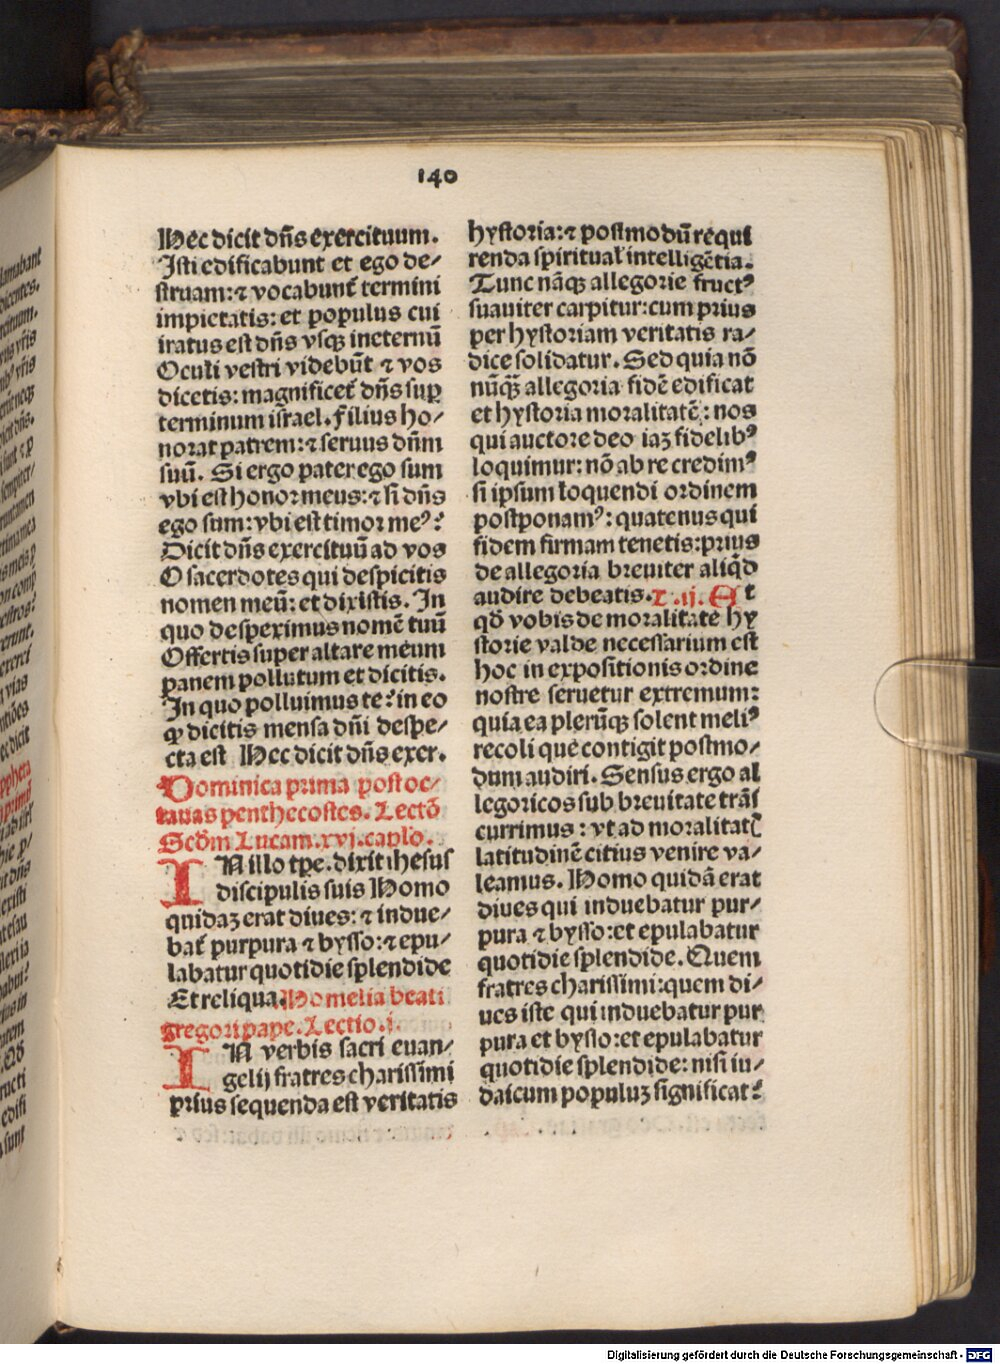 140
Hec dicit dn̄s exercituum.
Isti edificabunt et ego de⸗
struam: ⁊ vocabunt̄ termini
impietatis: et populus cui
iratus est dn̄s vsqꝫ ineternū
Oculi vestri videbūt ⁊ vos
dicetis: magnificet̄ dn̄s suꝑ
terminum israel. filius ho⸗
norat patrem: ⁊ seruus dn̄m
suū. Si ergo pater ego sum
vbi est honor meus: ⁊ si dn̄s
ego sum: vbi est timor meꝰ?
Dicit dn̄s exercituū ad vos
O sacerdotes qui despicitis
nomen meū: et dixistis. In
quo despeximus nomē tuū
Offertis super altare meum
panem pollutum et dicitis.
In quo polluimus te? in eo
ꝙ dicitis mensa dn̄i despe⸗
cta est Hec dicit dn̄s exer.
Dominica prima post oc⸗
tauas penthecostes. Lectō
Scd̄m Lucam. xvj. caplo.
IN illo tp̄e. dixit ihesus
discipulis suis Homo
quidaꝫ erat diues: ⁊ indue⸗
bat̄ purpura ⁊ bysso: ⁊ epu⸗
labatur quotidie splendide
Et reliqua. Homelia beati
gregorij pape. Lectio. j.
IN verbis sacri euan⸗
gelij fratres charissimi
prius sequenda est veritatis
hystoria: ⁊ postmodū requi
renda spiritual̄ intelligētia.
Tunc nāqꝫ allegorie fructꝰ
suauiter carpitur: cum prius
per hystoriam veritatis ra⸗
dice solidatur. Sed quia nō
nūqꝫ̄ allegoria fidē edificat
et hystoria moralitatē: nos
qui auctore deo iaꝫ fidelibꝰ
loquimur: nō ab re credimꝰ
si ipsum loquendi ordinem
postponamꝰ: quatenus qui
fidem firmam tenetis: prius
de allegoria breuiter aliqd̄
audire debeatis. r. .ij. At
qd̄ vobis de moralitate hy
storie valde necessarium est
hoc in expositionis ordine
nostre seruetur extremum:
quia ea plerūqꝫ solent meliꝰ
recoli que contigit postmo⸗
dum audiri. Sensus ergo al
legoricos sub breuitate trāſ
currimus: vt ad moralitatꝭ
latitudinē citius venire va⸗
leamus. Homo quidā erat
diues qui induebatur pur⸗
pura ⁊ bysso: et epulabatur
quotidie splendide. Quem
fratres charissimi: quem di⸗
ues iste qui induebatur pur
pura et bysso: et epulabatur
quotidie splendide: nisi iu⸗
daicum populuꝫ significat?
Digitalisierung gefördert durch die Deutsche Forschungsgemeinschaft - DFG